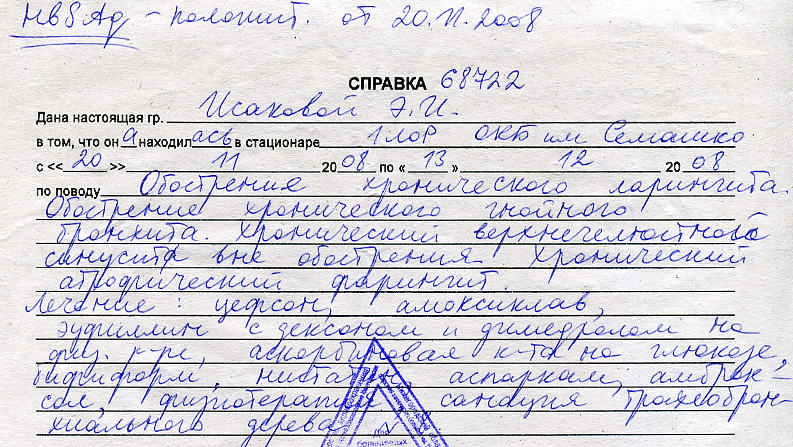 HBSAg - положит. от 20.11.2008
СПРАВКА 68722
Дана настоящая гр. Исаковой Э.И.
в том, что он а находил ась в стационаре 1 ЛОР ОКБ им Семашко
с <<20>> 11 2008 по «13» 12 2008
по поводу Обострения хронического ларингита.
Обострение хронического гнойного
бронхита. Хронический верхнечелюстной
синусит вне обострения. Хронический
атрофический фарингит.
Лечение: цефсон, амоксиклав,
эуфиллин с дексоном и димедролом на
физ. р-ре, аскорбиновая к-та на глюкозе,
бифиформ, нистатин, аспаркам, амброк-
сол, физиотерапия, санация трахеоброн-
хиального дерева
Для
больничных